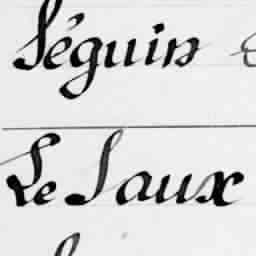 Séguin
Le Saux